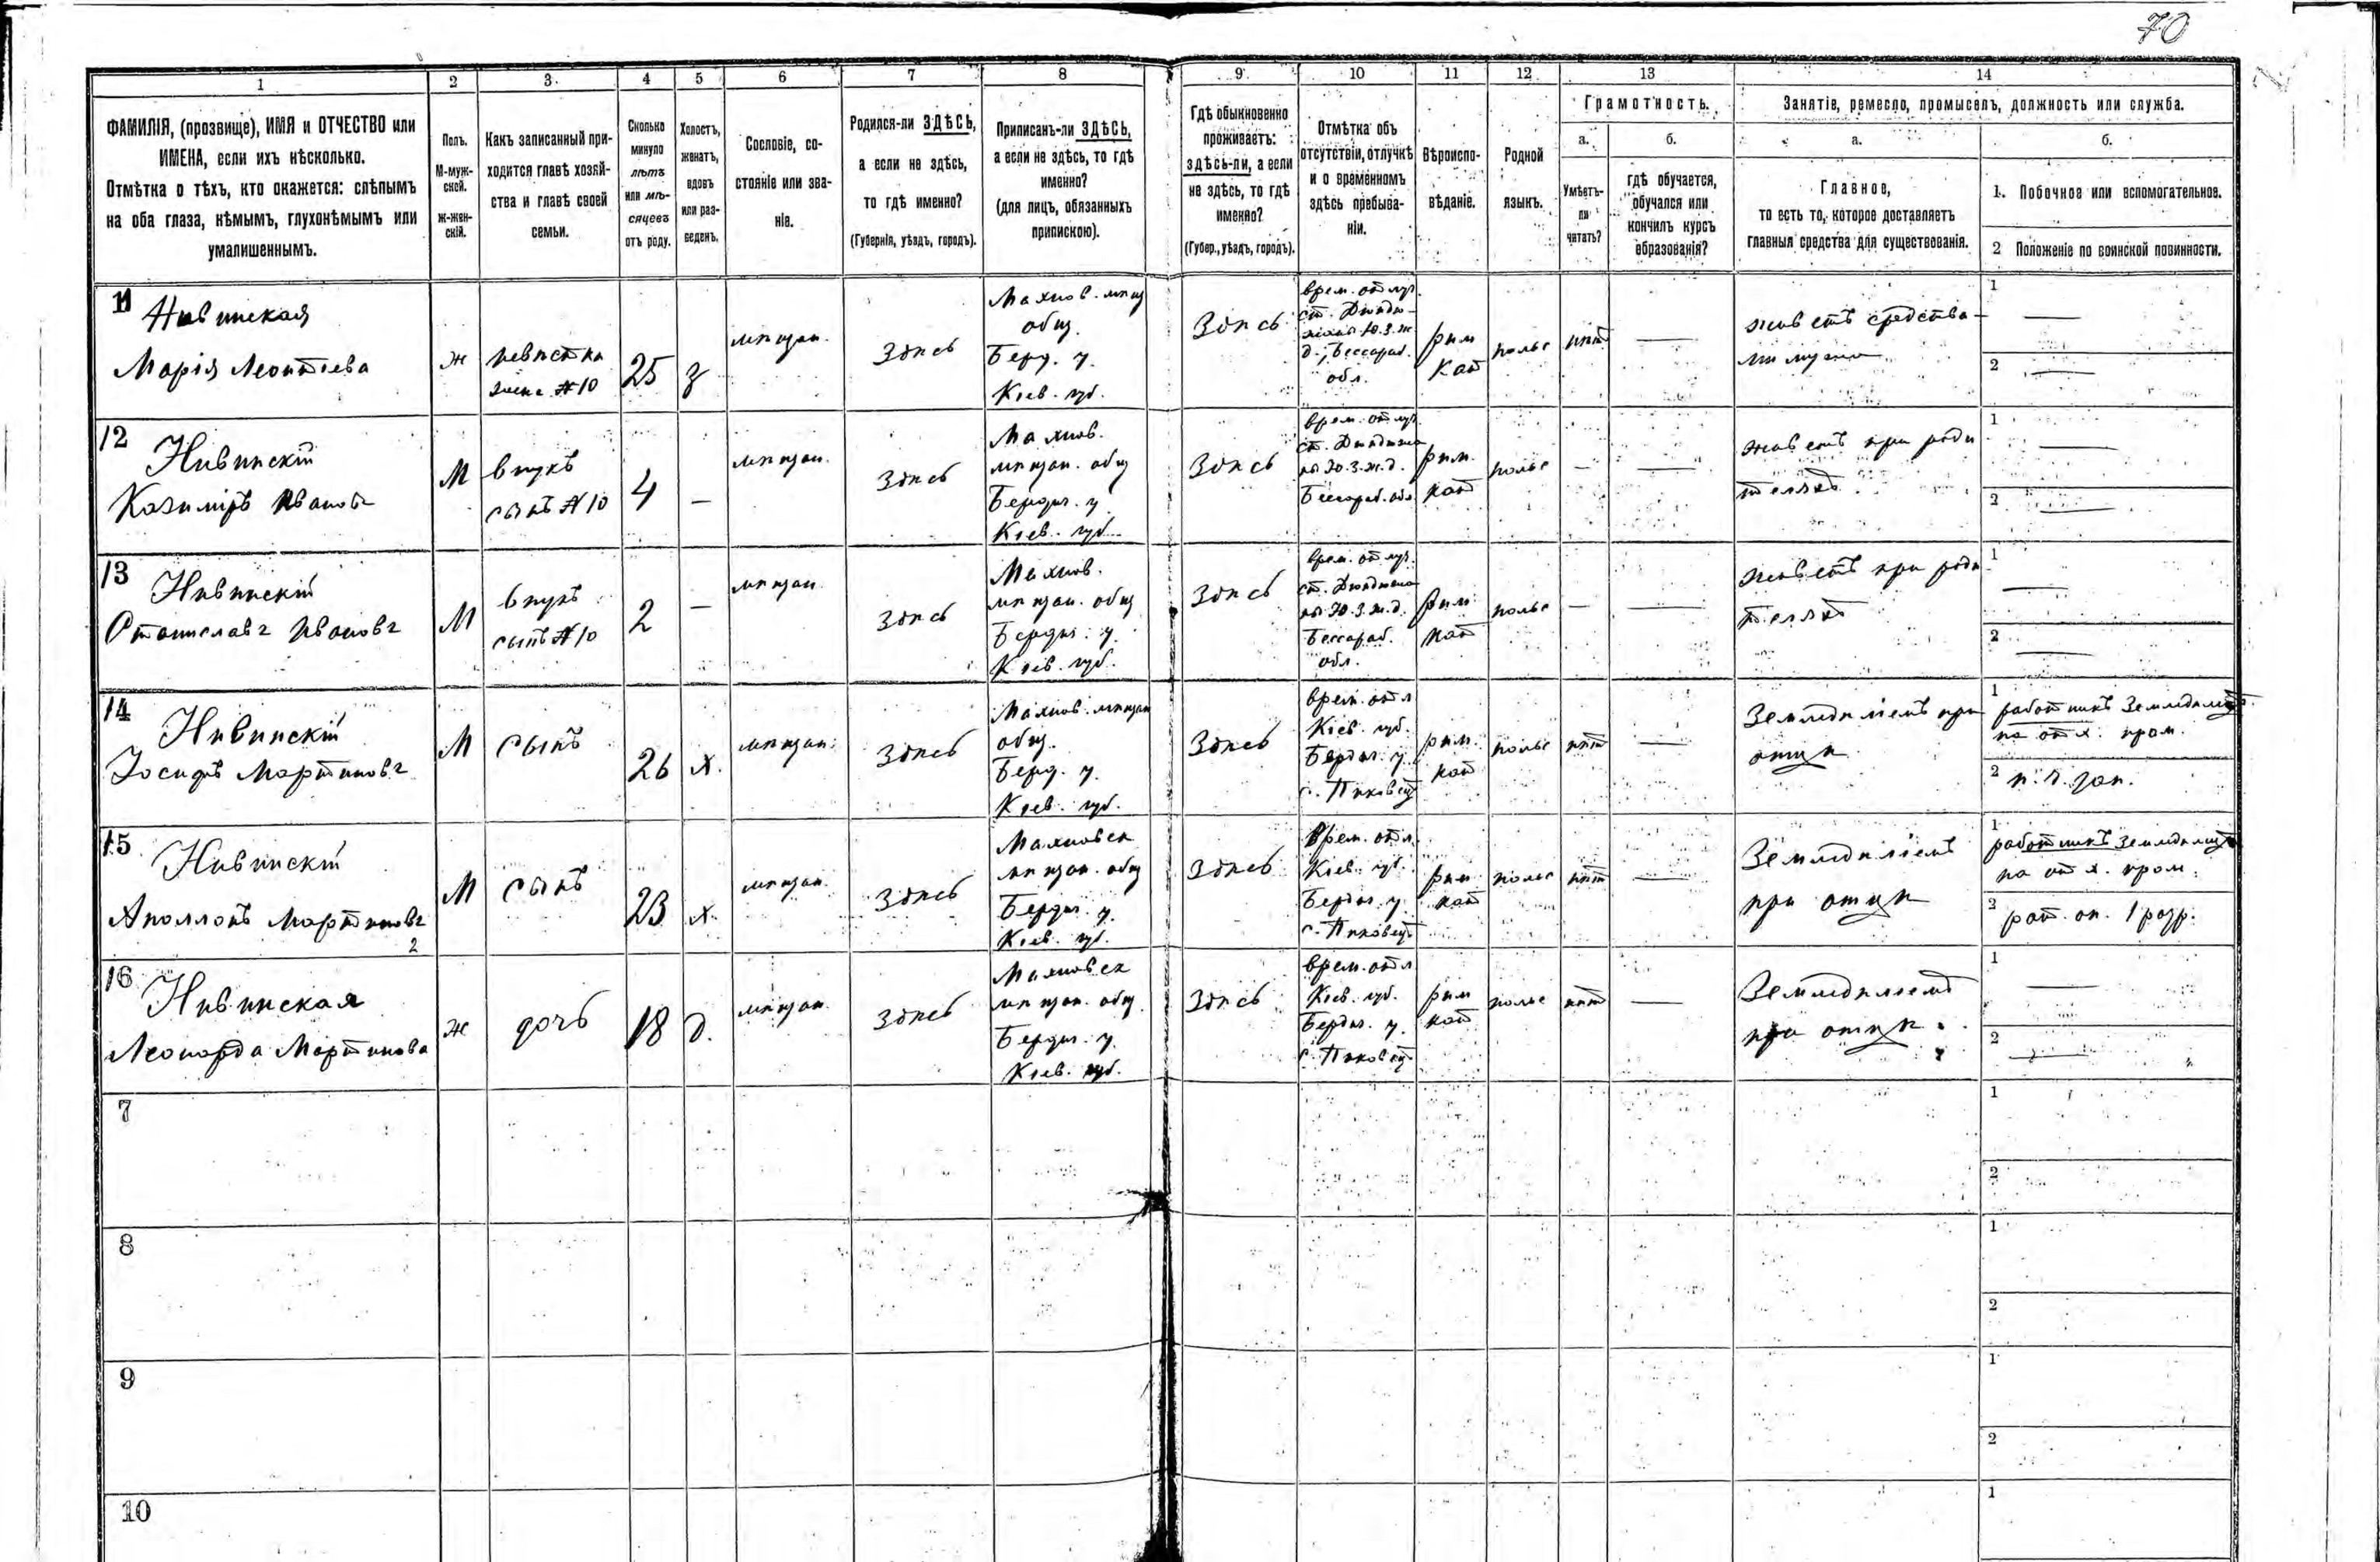 70
1 2 3 4 5 6 7 8 9 10 11 12 13 14
ФАМИЛІЯ, (прозвище), ИМЯ и ОТЧЕСТВО или
ИМЕНА, если ихъ нѣсколько.
Отмѣтка о тѣхъ, кто окажется: слѣпымъ
на оба глаза, нѣмымъ, глухонѣмымъ или
умалишеннымъ.
Полъ.
М-муж-
ской.
ж-жен-
скій.
Какъ записанный при-
ходится главѣ хозяй-
ства и главѣ своей
семьи.
Сколько
минуло
лѣтъ
или мѣ-
сяцевъ
отъ роду.
Холостъ,
женатъ,
вдовъ
или раз-
веденъ.
Сословіе, со-
стояніе или зва-
ніе.
Родился-ли ЗДѢСЬ,
а если не здѣсь,
то гдѣ именно?
(Губернія, уѣздъ, городъ).
Приписанъ-ли ЗДѢСЬ,
а если не здѣсь, то гдѣ
именно?
(для лицъ, обязанныхъ
припискою).
Гдѣ обыкновенно
проживаетъ:
здѣсь-ли, а если
не здѣсь, то гдѣ
именно?
(Губер., уѣздъ, городъ).
Отмѣтка объ
отсутствіи, отлучкѣ
и о временномъ
здѣсь пребыва-
ніи.
Вѣроиспо-
вѣданіе.
Родной
языкъ.
Грамотность.
а.
Умѣетъ-
ли
читать?
б.
гдѣ обучается,
обучался или
кончилъ курсъ
образованія?
Занятіе, ремесло, промыселъ, должность или служба.
а.
Главное,
то есть то, которое доставляетъ
главныя средства для существованія.
б.
1. Побочное или вспомогательное.
2 Положеніе по воинской повинности.
11
Нивинская
Марія Леонтіева
ж
невѣстка
жена №10
25
з
мѣщан.
Здѣсь
Махнов. мѣщ
общ.
Берд. у.
Кіев. губ.
Здѣсь
врем. отлуч.
ст.
Ю.З.Ж
д., Бессараб.
обл.
рим
Кат
польс
нѣт
—
живетъ средства-
ми мужа
1 —
2 —
12
Нивинскій
Казиміръ Ивановъ
М
внукъ
сынъ №10
4
—
мѣщан.
Здѣсь
Махнов.
мѣщан. общ
Бердич. у.
Кіев. губ.
Здѣсь
врем. отлуч
ст.
Ю.З.Ж.д.
Бессараб. обл
рим.
кат
польс
—
—
живетъ при роди
теляхъ
1 —
2 —
13
Нивинскій
Станиславъ Ивановъ
М
внукъ
сынъ №10
2
—
мѣщан
Здѣсь
Махнов.
мѣщан. общ
Бердич. у.
Кіев. губ.
Здѣсь
врем. отлуч.
ст.
Ю.З.Ж.д.
Бессараб.
обл.
рим
кат
польс
—
—
живетъ при роди
теляхъ
1 —
2 —
14
Нивинскій
Іосифъ Мартиновъ
М
сынъ
26
х.
мѣщан.
Здѣсь
Махнов. мѣщан
общ.
Берд. у.
Кіев. губ.
Здѣсь
врем. отл
Кіев. губ.
Бердич. у.
с.
рим.
кат
польс
нѣт
—
Земледѣліемъ при
отцѣ
1 работникъ
на отх. пром.
2
15
Нивинскій
Аполлонъ Мартиновъ
2
М
сынъ
23
х.
мѣщан.
Здѣсь
Махновск
мѣщан. общ
Бердич. у.
Кіев. губ.
Здѣсь
Врем. отл
Кіев. губ.
Бердич. у
с.
рим
кат
польс
нѣт
—
Земледѣліемъ
при отцѣ
1
работникъ
на отх. пром.
2
рат. оп. 1 разр.
16
Нивинская
Леонарда Мартинова
ж
дочь
18
д.
мѣщан.
Здѣсь
Махновск
мѣщан. общ
Бердич. у.
Кіев. губ.
Здѣсь
врем. отл
Кіев. губ.
Бердич. у.
с.
рим
кат
польс
нѣт
—
Земледѣліемъ
при отцѣ.
1 —
2 —
7
1
2
8
1
2
9
1
2
10
1